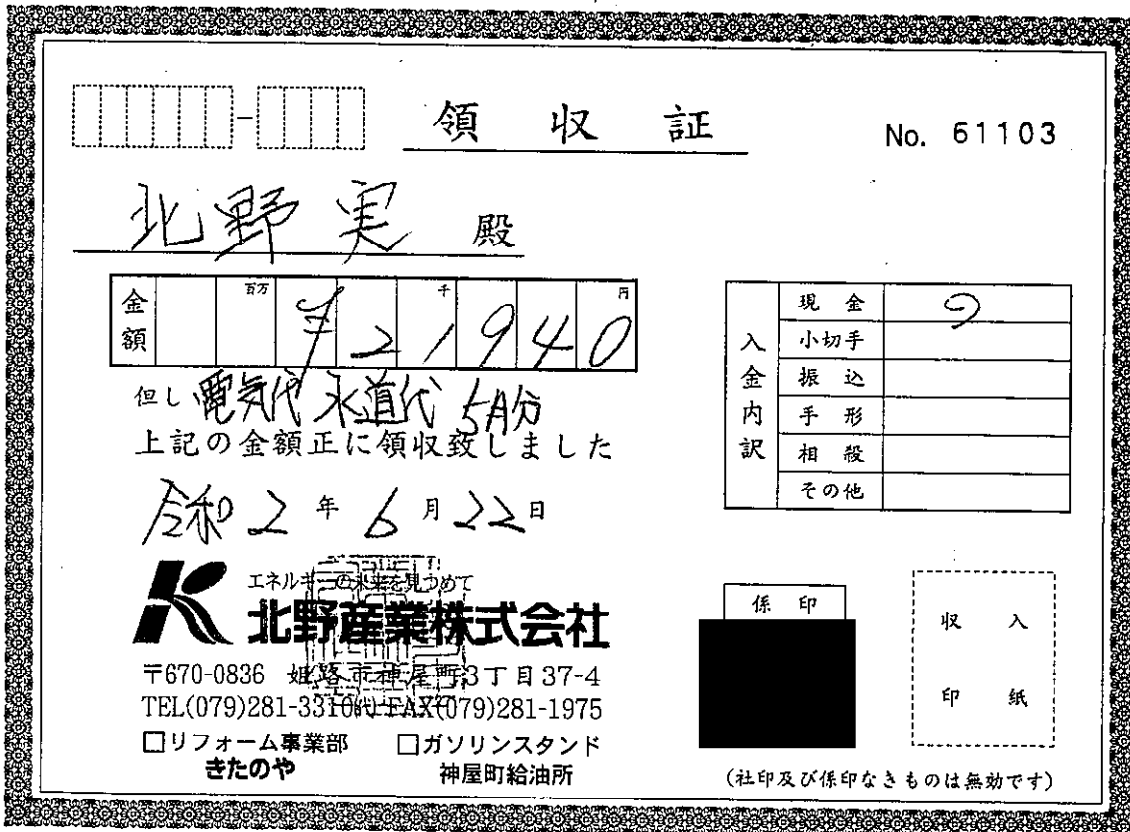 領収証
No. 61103
北野実 殿
金額 百万 千 円
¥21940
但し 電気代 水道代 5月分
上記の金額正に領収致しました
令和 2 年 6 月 22 日
入金内訳
現金
小切手
振込
手形
相殺
その他
エネルギーの未来を見つめて
北野産業株式会社
〒670-0836 姫路市神屋町3丁目37-4
TEL(079)281-3310(代) FAX(079)281-1975
□リフォーム事業部 □ガソリンスタンド
きたのや 神屋町給油所
係印
収入
印紙
(社印及び係印なきものは無効です)